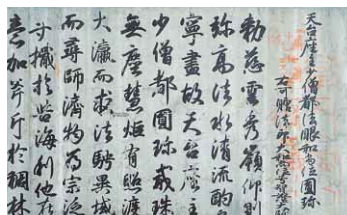 天台座主少僧都法眼和尚位圓珍
右可贈法印大和尚位号智證
勅慈雲秀嶺仰則
弥高法水清流酌
寧盡故天台座主
少僧都圓珍戒珠
無塵慧炬有照渡
大瀛而求法騁異域
而尋師濟物為宗泛
舟檝於苦海利他在
意加斧斤於稠林